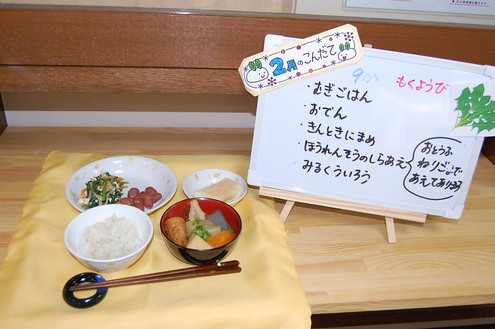 2月のこんだて
9か もくようび
・むぎごはん
・おでん
・きんときにまめ
・ほうれんそうのしらあえ
・みるくういろう
おとうふ
ねりごまで
あえてあります